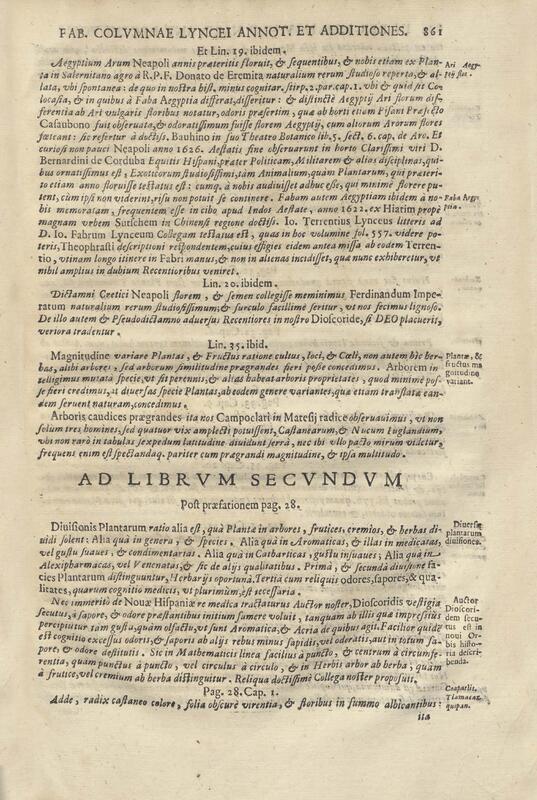 FAB. COLVMNAE LYNCEI ANNOT. ET ADDITIONES. 861
Et Lin. 19. ibidem.
Aegyptium Arum Neapoli annis præteritis floruit, & sequentibus, & nobis etiam ex Plan-
ta in Salernitano agro à R.P.F. Donato de Eremita naturalium rerum studioso reperto, & al-
lata, vbi spontanea: de quo in nostra hist. minus cognitar. stirp. 2. par. cap. 1. vbi & quid sit Co-
locasia, & in quibus à Faba Aegyptia differat, disseritur: & distinctè Aegyptij Ari florum dif-
ferentia ab Ari vulgaris floribus notatur, odoris præsertim, qua ab horti etiam Pisani Præfecto
Casaubono fuit obseruata, & odoratissimum fuisse florem Aegyptij, cum aliorum Arorum flores
fœteant: sic refertur à doctiss. Bauhino in suo Theatro Botanico lib. 5. sect. 6. cap. de Aro. Et
curiosi non pauci Neapoli anno 1626. Aestatis fine obseruarunt in horto Clarissimi viri D.
Bernardini de Corduba Equitis Hispani, præter Politicam, Militarem & alias disciplinas, qui-
bus ornatissimus est, Exoticorum studiosissimi, tàm Animalium, quàm Plantarum, qui præteri-
to etiam anno floruisse testatus est: cumq. à nobis audiuisset adhuc esse, qui minimè florere pu-
tent, cùm ipsi non viderint, risu non potuit se continere. Fabam autem Aegyptiam ibidem à no-
bis memoratam, frequentem esse in cibo apud Indos Aestate, anno 1622. ex Hiatim propè
magnam vrbem Sutschem in Chinensi regione doctiss. Io. Terrentius Lynceus litteris ad
D. Io. Fabrum Lynceum Collegam testatus est, quas in hoc volumine fol. 557. videre po-
teris, Theophrasti descriptioni respondentem, cuius effigies eidem antea missa ab eodem Terren-
tio, vtinam longo itinere in Fabri manus, & non in alienas incidisset, qua nunc exhiberetur, vt
nihil amplius in dubium Recentioribus veniret.
Ari Aegy-
ptij flos.
Faba Aegy-
ptia.
Lin. 20. ibidem.
Dictamni Cretici Neapoli florem, & semen collegisse meminimus Ferdinandum Impe-
ratum naturalium rerum studiosissimum, & surculo facillimè seritur, vt nos fecimus lignoso.
De illo autem & Pseudodictamno aduersus Recentiores in nostro Dioscoride, si DEO placuerit,
veriora tradentur.
Lin. 35. ibid.
Magnitudine variare Plantas, & Fructus ratione cultus, loci, & Cœli, non autem hìc her-
bas, alibi arbores, sed arborum similitudine prægrandes fieri posse concedimus. Arborem in-
telligimus mutata specie, vt sit perennis, & alias habeat arboris proprietates, quod minimè pos-
se fieri credimus, vt diuersas specie Plantas, ab eodem genere variantes, qua etiam translata ean-
dem seruent naturam, concedimus.
Plantæ, &
fructus ma
gnitudine
variant.
Arboris caudices prægrandes ita nos Campoclari in Matesij radice obseruauimus, vt non
solum tres homines, sed quatuor vix amplecti potuissent, Castanearum, & Nucum Iuglandium,
vbi non rarò in tabulas sexpedum latitudine diuidunt serrâ, nec ibi vllo pacto mirum videtur,
frequens enim est spectandaq. pariter cum prægrandi magnitudine, & ipsa multitudo.
AD LIBRVM SECVNDVM
Post præfationem pag. 28.
Diuisionis Plantarum ratio alia est, quà Plantæ in arbores, frutices, cremios, & herbas di-
uidi solent: Alia quà in genera, & species. Alia quà in Aromaticas, & illas in medicatas,
vel gustu suaues, & condimentarias. Alia quà in Catharticas, gustu insuaues; Alia quà in
Alexipharmacas, vel Venenatas, & sic de alijs qualitatibus. Primâ, & secundâ diuisione fa-
cies Plantarum distinguntur, Herbarijs oportunâ. Tertiâ cum reliquis odores, sapores, & qua-
litates, quarum cognitio medicis, vt plurimùm, est necessaria.
Diuersæ
plantarum
diuisiones.
Nec immeritò de Nouæ Hispaniæ re medica tractaturus Auctor noster, Dioscoridis vestigia
secutus, à sapore, & odore præstantibus initium sumere voluit, tanquam ab illis quæ impensius
percipiuntur tàm gustu, quàm olfactu, vt sunt Aromatica, & Acria de quibus agit. Facilior quidē
est cognitio excessus odoris, & saporis ab alijs rebus minùs sapidis, vel oderatis, aut in totum sa-
pore, & odore destitutis. Sic in Mathematicis linea faciliùs à puncto, & centrum à circumfe-
rentia, quàm punctus à puncto, vel circulus à circulo, & in Herbis arbor ab herba, quàm
à frutice, vel cremium ab herba distinguitur. Reliqua doctissimè Collega noster proposuit.
Auctor
Dioscori-
dem secu-
tus est in
noui Or-
bis histo-
ria descri-
benda.
Pag. 28. Cap. 1.
Adde, radix castaneo colore, folia obscurè virentia, & floribus in summo albicantibus:
Tlamacaz
quipan.